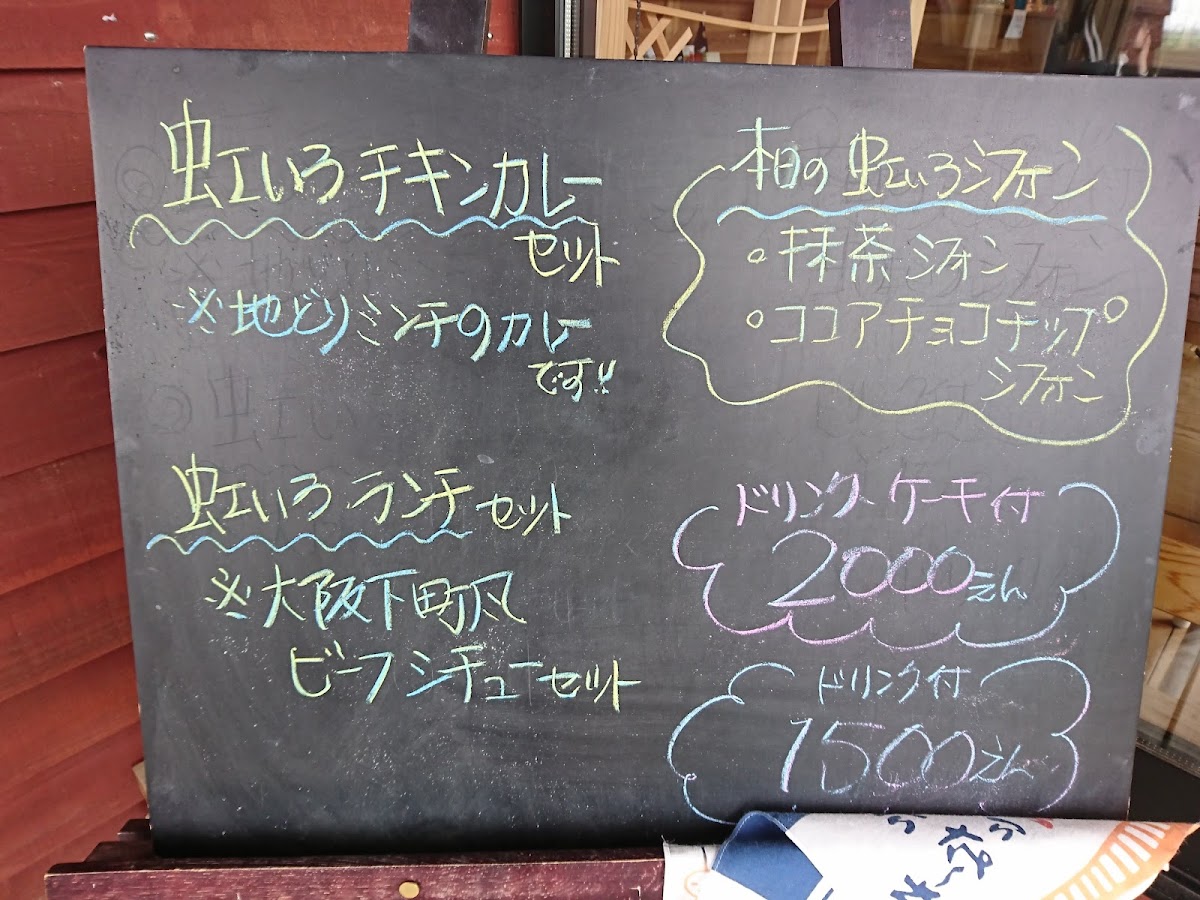 虹いろチキンカレー
セット
※地どりミンチのカレー
です!!
虹いろランチセット
※大阪下町風
ビーフシチューセット
本日の虹いろシフォン
○抹茶シフォン
○ココアチョコチップ
シフォン
ドリンク、ケーキ付
2000えん
ドリンク付
1500えん